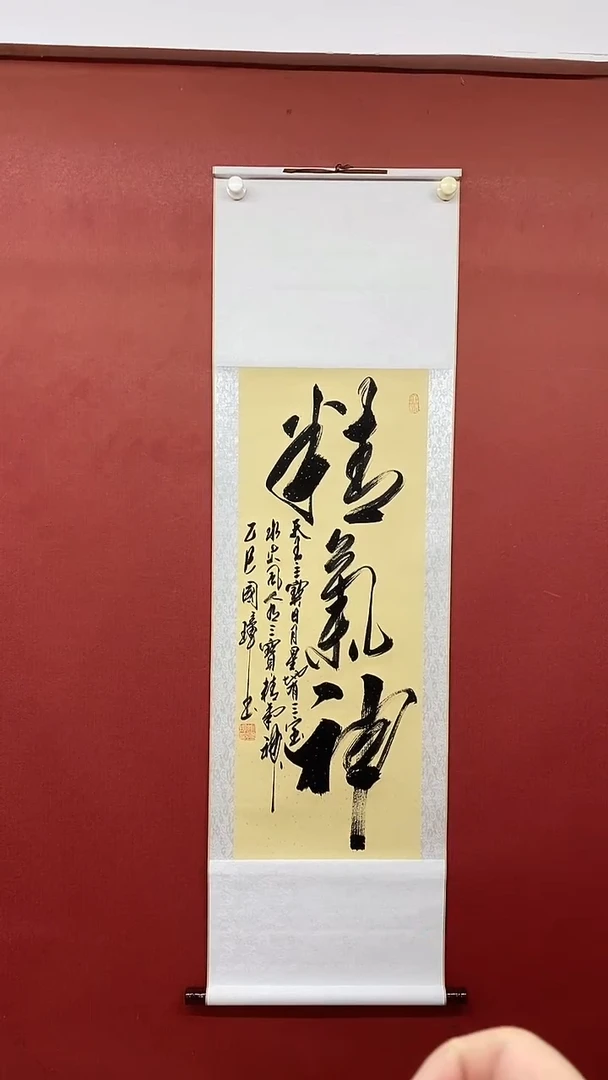 精氣神
天有三寳日月星地有三寶
水火風人有三寶精氣神
乙巳國璋書